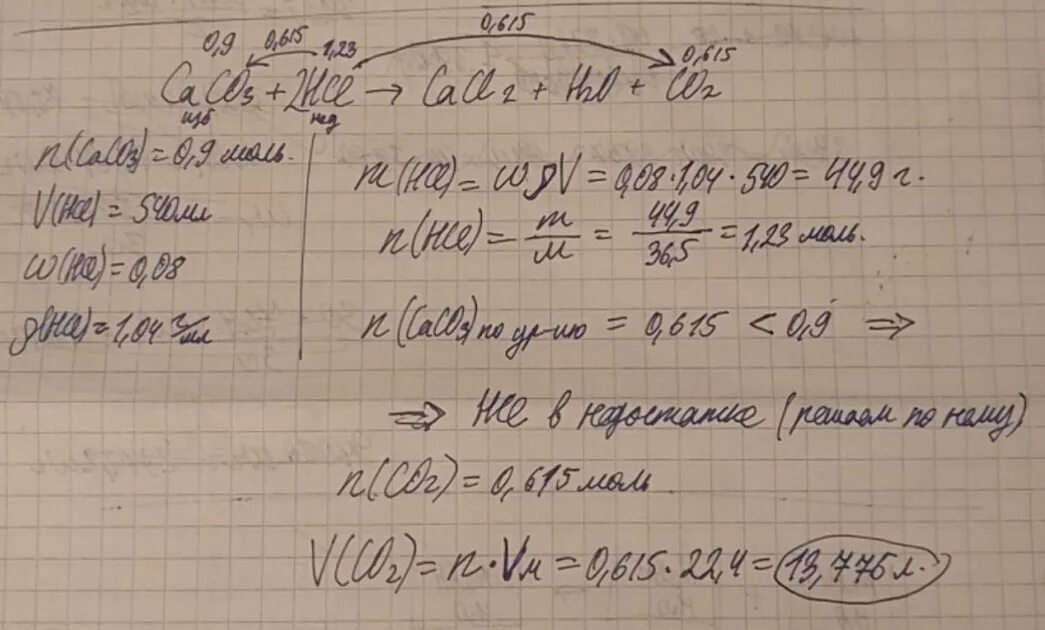 0,9 0,615 1,23 0,615 0,615
CaCO3 + 2HCl → CaCl2 + H2O + CO2
изб нед
n(CaCO3) = 0,9 моль.
V(HCl) = 540 мл
ω(HCl) = 0,08
ρ(HCl) = 1,04 г/мл
m(HCl) = ωρV = 0,08·1,04·540 = 44,9 г.
n(HCl) = m/M = 44,9/36,5 = 1,23 моль.
n(CaCO3) по ур-ию = 0,615 < 0,9 ⇒
⇒ HCl в недостатке (решаем по нему)
n(CO2) = 0,615 моль
V(CO2) = n·Vм = 0,615·22,4 = 13,776 л.